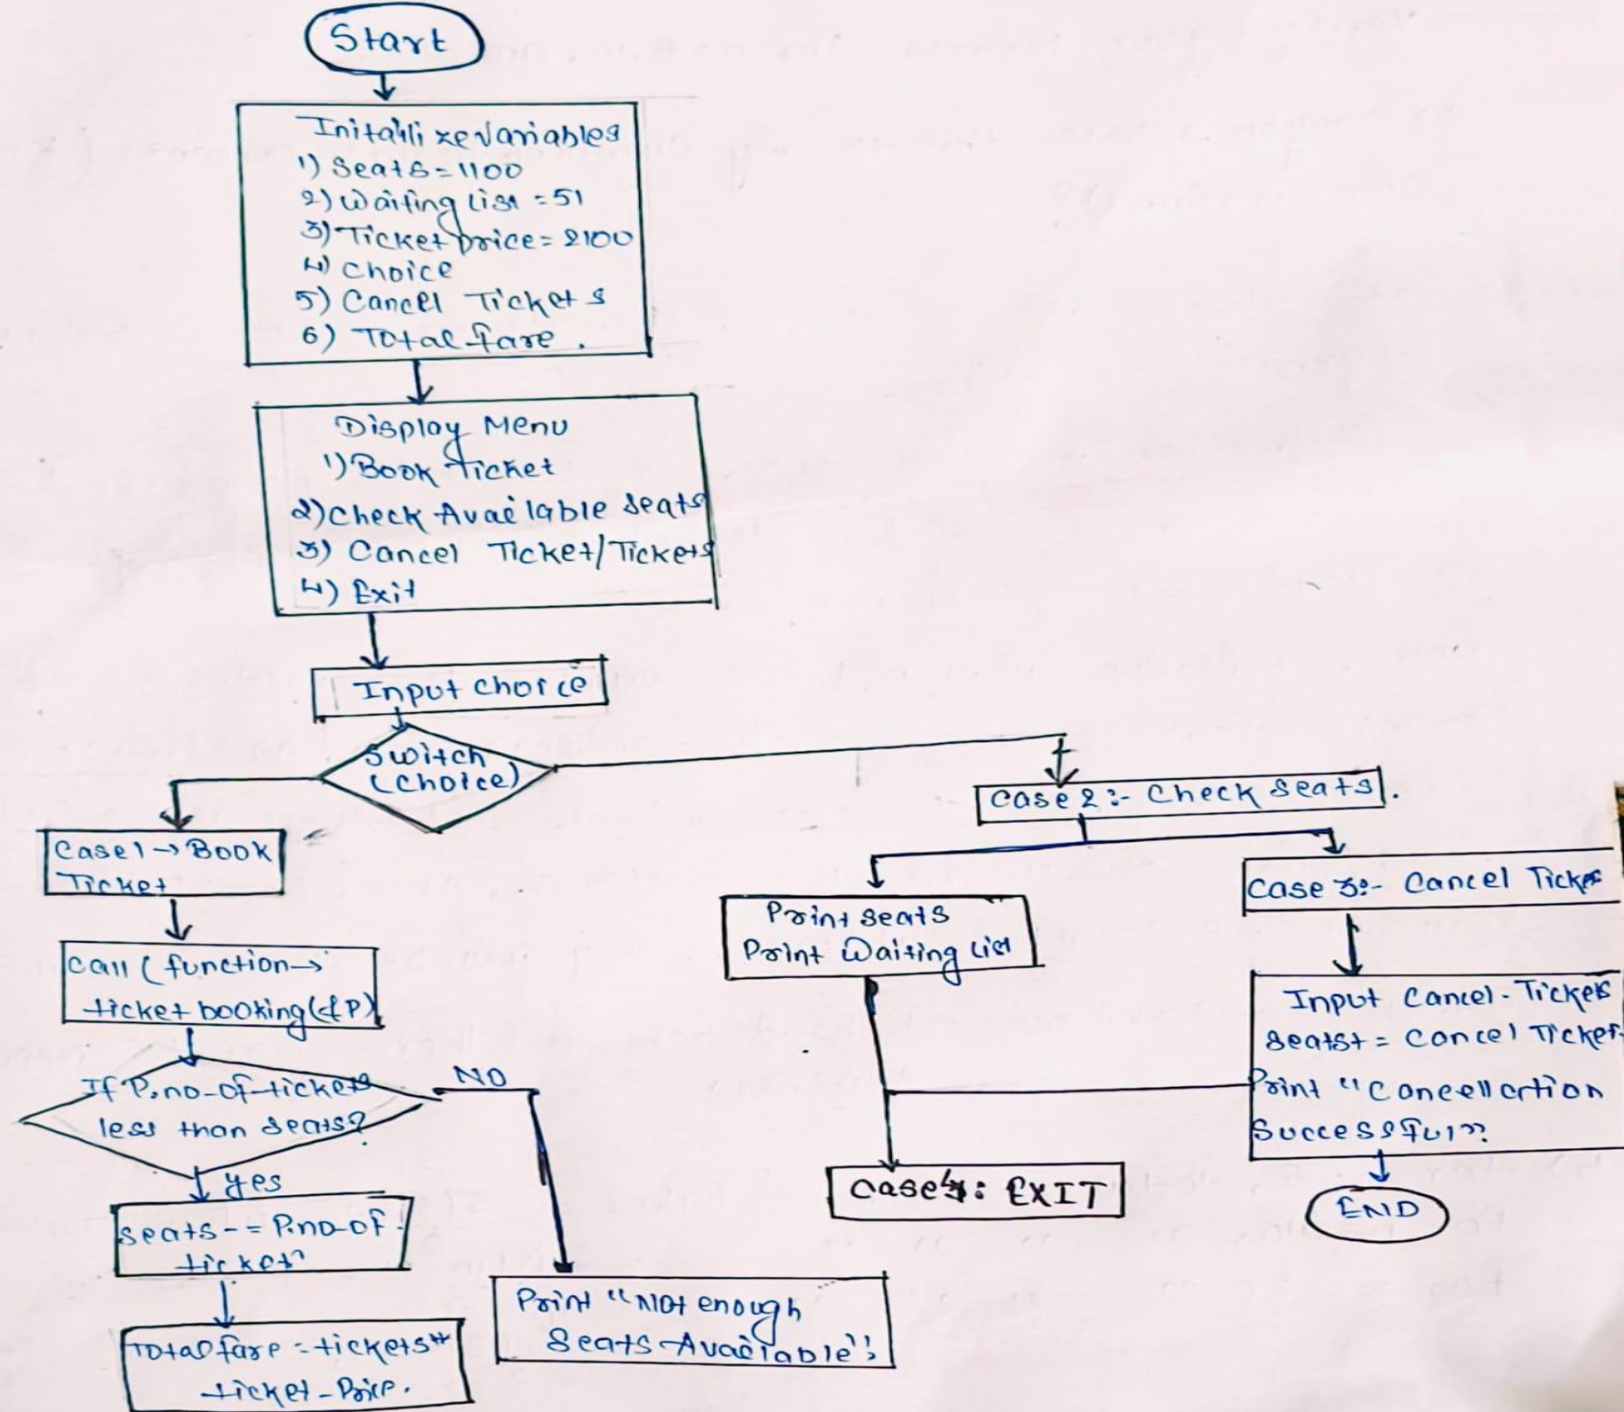 Start
Initalli ze Variables
1) Seats = 1100
2) Waiting List = 51
3) Ticket price = 2100
4) choice
5) Cancel Tickets
6) Total fare.
Display Menu
1) Book Ticket
2) Check Available Seats
3) Cancel Ticket/Tickets
4) Exit
Input choice
Switch
(choice)
Case 1 → Book
Ticket
Call (function →
ticket booking(&P)
If P.no-of-tickets
less than seats?
NO
yes
Seats -= P.no-of
ticket
Total fare = tickets*
ticket-Price.
Print "Not enough
Seats Available";
Case 2 :- Check Seats.
Print seats
Print Waiting List
Case 4: EXIT
Case 3:- Cancel Ticket
Input Cancel-Tickets
Seats+ = Cancel Ticket
Print "Cancellation
Successful"
END